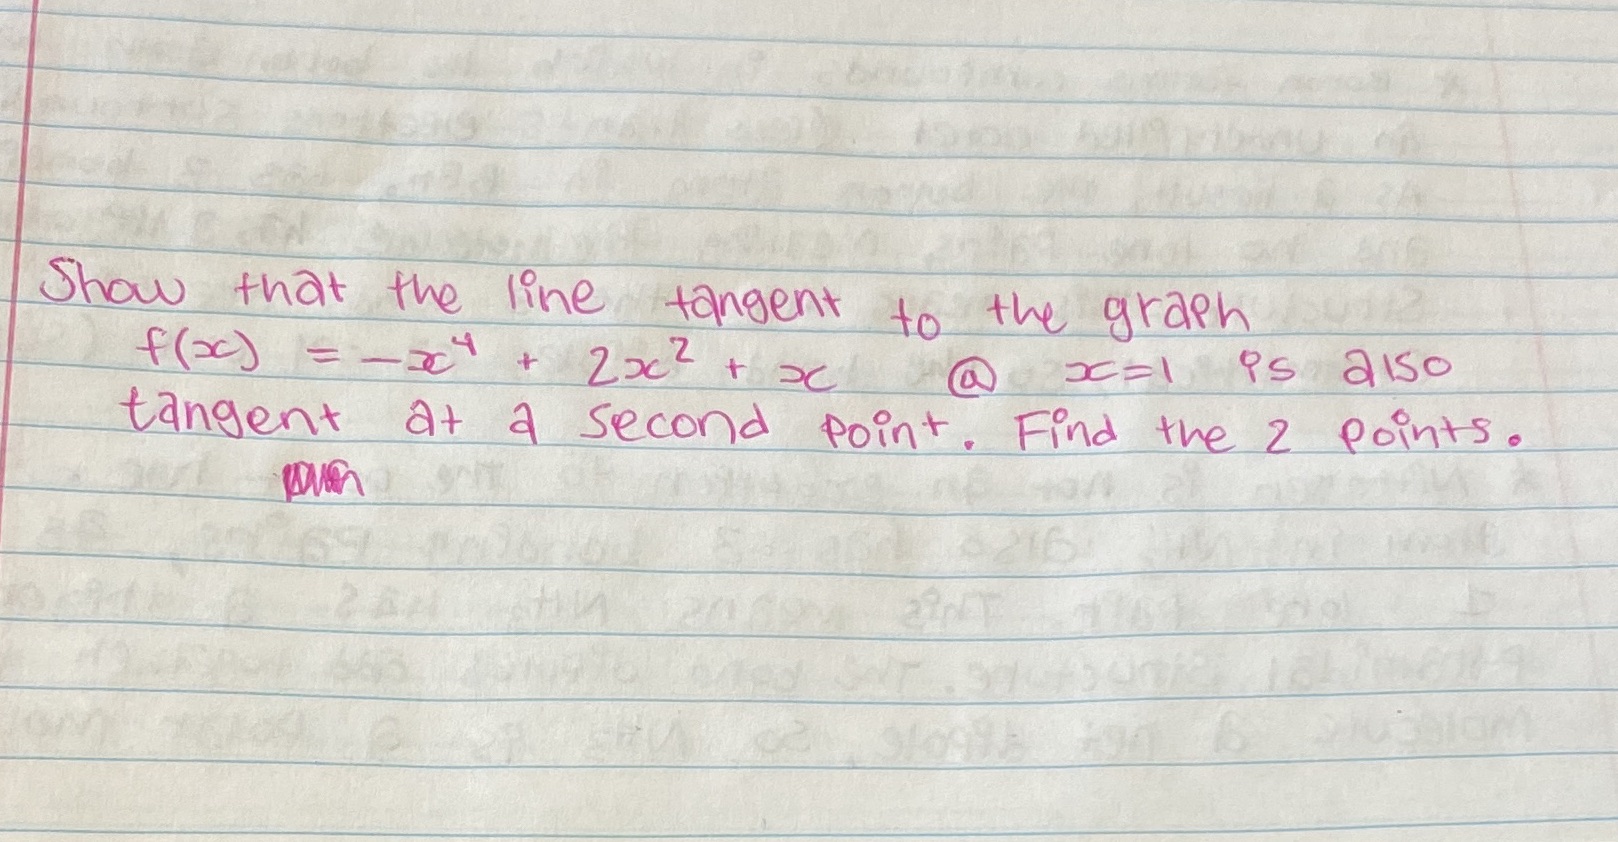 Show that the line tangent to the graph
f(x) = -x⁴ + 2x² + x @ x=1 is also
tangent at a second point. Find the 2 points.